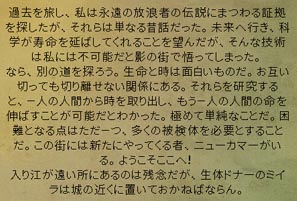 過去を旅し、私は永遠の放浪者の伝説にまつわる証拠
を探したが、それらは単なる昔話だった。未来へ行き、科
学が寿命を延ばしてくれることを望んだが、そんな技術
は私には不可能だと影の街で悟ってしまった。
なら、別の道を探ろう。生命と時は面白いものだ。お互い
切っても切り離せない関係にある。それらを研究する
と、一人の人間から時を取り出し、もう一人の人間の命を
伸ばすことが可能だとわかった。極めて単純なことだ。困
難となる点はただ一つ、多くの被検体を必要とすること
だ。この街には新たにやってくる者、ニューカマーがい
る。ようこそここへ!
入り江が遠い所にあるのは残念だが、生体ドナーのミイ
ラは城の近くに置いておかねばならん。